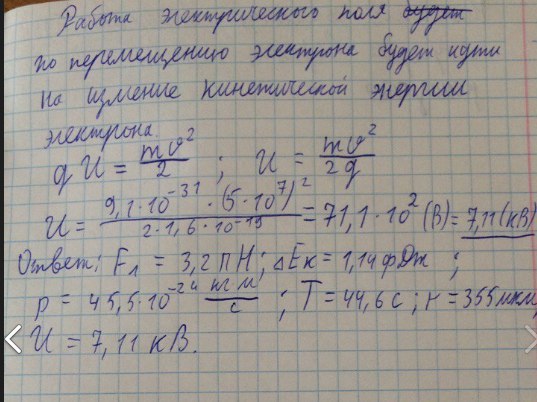 Работа электрического поля будет
по перемещению электрона будет идти
на измение кинетической энергии
электрона.
qU = mv²/2 ; U = mv²/2q
U = 9,1·10⁻³¹·(5·10⁷)²/2·1,6·10⁻¹⁹ = 71,1·10² (В) = 7,11 (кВ)
Ответ: Fл = 3,2 пН; ΔEк = 1,14 фДж ;
p = 45,5·10⁻²⁴ кг·м/с ; T = 44,6 с ; r = 355 мкм,
U = 7,11 кВ.